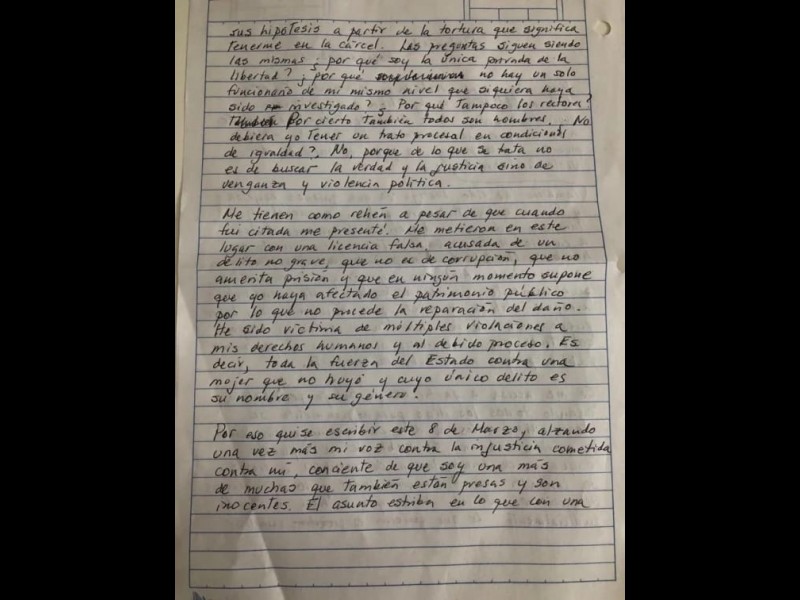 sus hipótesis a partir de la tortura que significa
tenerme en la cárcel. Las preguntas siguen siendo
las mismas ¿por qué soy la única privada de la
libertad? ¿por qué no hay un solo
funcionario de mi mismo nivel que siquiera haya
sido investigado? ¿Por qué tampoco los rectora?
Por cierto también todos son hombres. ¿No
debiera yo tener un trato procesal en condiciones
de igualdad? No, porque de lo que se trata no
es de buscar la verdad y la justicia sino de
venganza y violencia política.
Me tienen como rehén a pesar de que cuando
fui citada me presenté. Me metieron en este
lugar con una licencia falsa, acusada de un
delito no grave, que no es de corrupción, que no
amerita prisión y que en ningún momento supone
que yo haya afectado el patrimonio público
por lo que no procede la reparación del daño.
He sido víctima de múltiples violaciones a
mis derechos humanos y al debido proceso. Es
decir, toda la fuerza del Estado contra una
mujer que no huyó y cuyo único delito es
su nombre y su género.
Por eso quise escribir este 8 de Marzo, alzando
una vez más mi voz contra la injusticia cometida
contra mí, conciente de que soy una más
de muchas que también están presas y son
inocentes. El asunto estriba en lo que con una